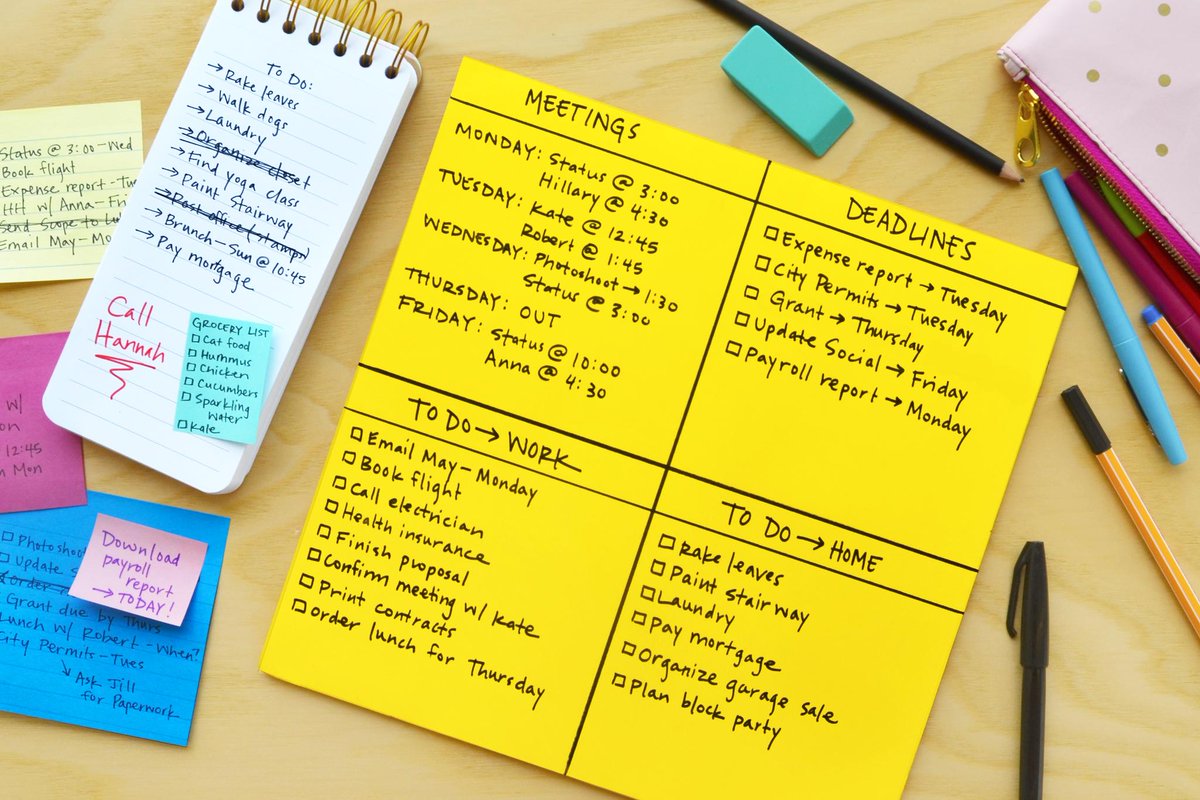 Status @ 3:00-Wed
Book flight
Expense report-Tu
HH w/ Anna-Fri
Send Scope to Lu
Email May-Mo
To Do:
→Rake leaves
→Walk dogs
→Laundry
→Organize closet
→Find yoga class
→Paint Stairway
→Post office (stamps)
→Brunch-Sun @ 10:45
→Pay mortgage
Call
Hannah
GROCERY LIST
□ Cat food
□ Hummus
□ Chicken
□ Cucumbers
□ Sparkling
water
□ Kale
w/
12:45
Mon
□ Photoshoot
□ Update
Order
Grant due by Thurs
Lunch w/ Robert-When?
City Permits-Tues
↘ Ask Jill
for Paperwork
Download
payroll
report
→TODAY!
MEETINGS
MONDAY: Status @ 3:00
Hillary @ 4:30
TUESDAY: Kate @ 12:45
Robert @ 1:45
WEDNESDAY: Photoshoot → 1:30
Status @ 3:00
THURSDAY: OUT
FRIDAY: Status @ 10:00
Anna @ 4:30
DEADLINES
□ Expense report → Tuesday
□ City Permits → Tuesday
□ Grant → Thursday
□ Update Social → Friday
□ Payroll report → Monday
TO DO → WORK
□ Email May-Monday
□ Book flight
□ Call electrician
□ Health insurance
□ Finish proposal
□ Confirm meeting w/ Kate
□ Print contracts
□ Order lunch for Thursday
TO DO → HOME
□ Rake leaves
□ Paint stairway
□ Laundry
□ Pay mortgage
□ Organize garage sale
□ Plan block party